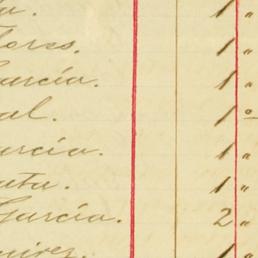 a. 1 "
lores. 1 "
García. 1 "
al. 1 o
arcía. 1 "
ata. 1 "
García. 2 "
1 "